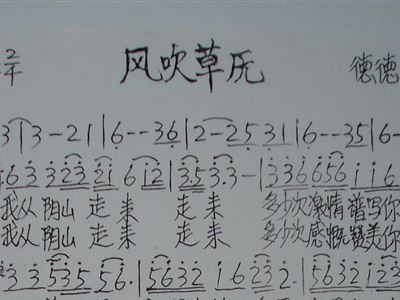 2 风吹草尻 德德
4
3|3-21|6--36|2-2531|6--35|6
6333232216121235 3.3-|336665611 6
我从阴山走来 走来 多少次激情谱写你
我从阴山走来 走来 多少次感慨赞美你
3353556.|563216232.|563212